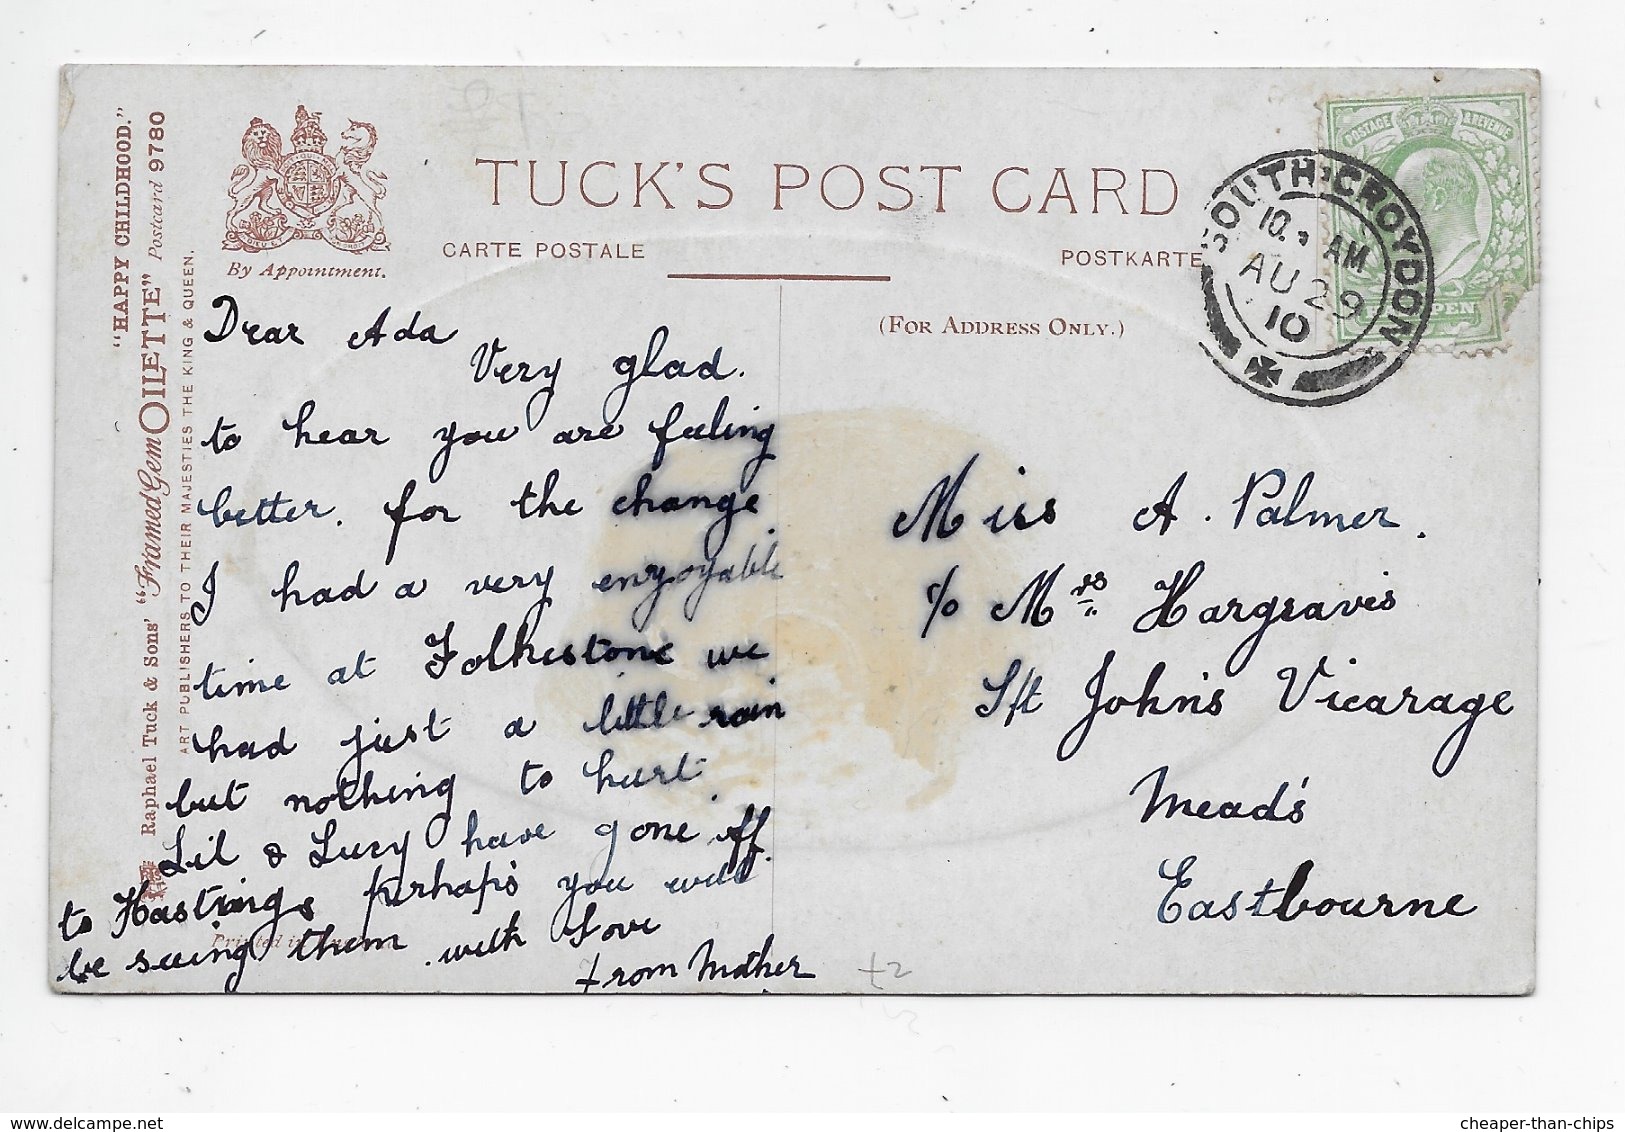 "HAPPY CHILDHOOD."
Raphael Tuck & Sons' "Framed Gem OILETTE" Postcard 9780
ART PUBLISHERS TO THEIR MAJESTIES THE KING & QUEEN.
By Appointment.
TUCK'S POST CARD
CARTE POSTALE
POSTKARTE
(FOR ADDRESS ONLY.)
POSTAGE & REVENUE
SOUTH CROYDON
10. AM
AU 29
10
Dear Ada
Very glad.
to hear you are feeling
better. for the change.
I had a very enjoyable
time at Folkestone we
had just a little rain
but nothing to hurt.
Lil & Lucy have gone off.
to Hastings perhaps you will
be seeing them. with Love
from Mother
Miss A. Palmer.
c/o Mrs Hargravis
S/t John's Vicarage
Mead's
Eastbourne
+2
cheaper-than-chips